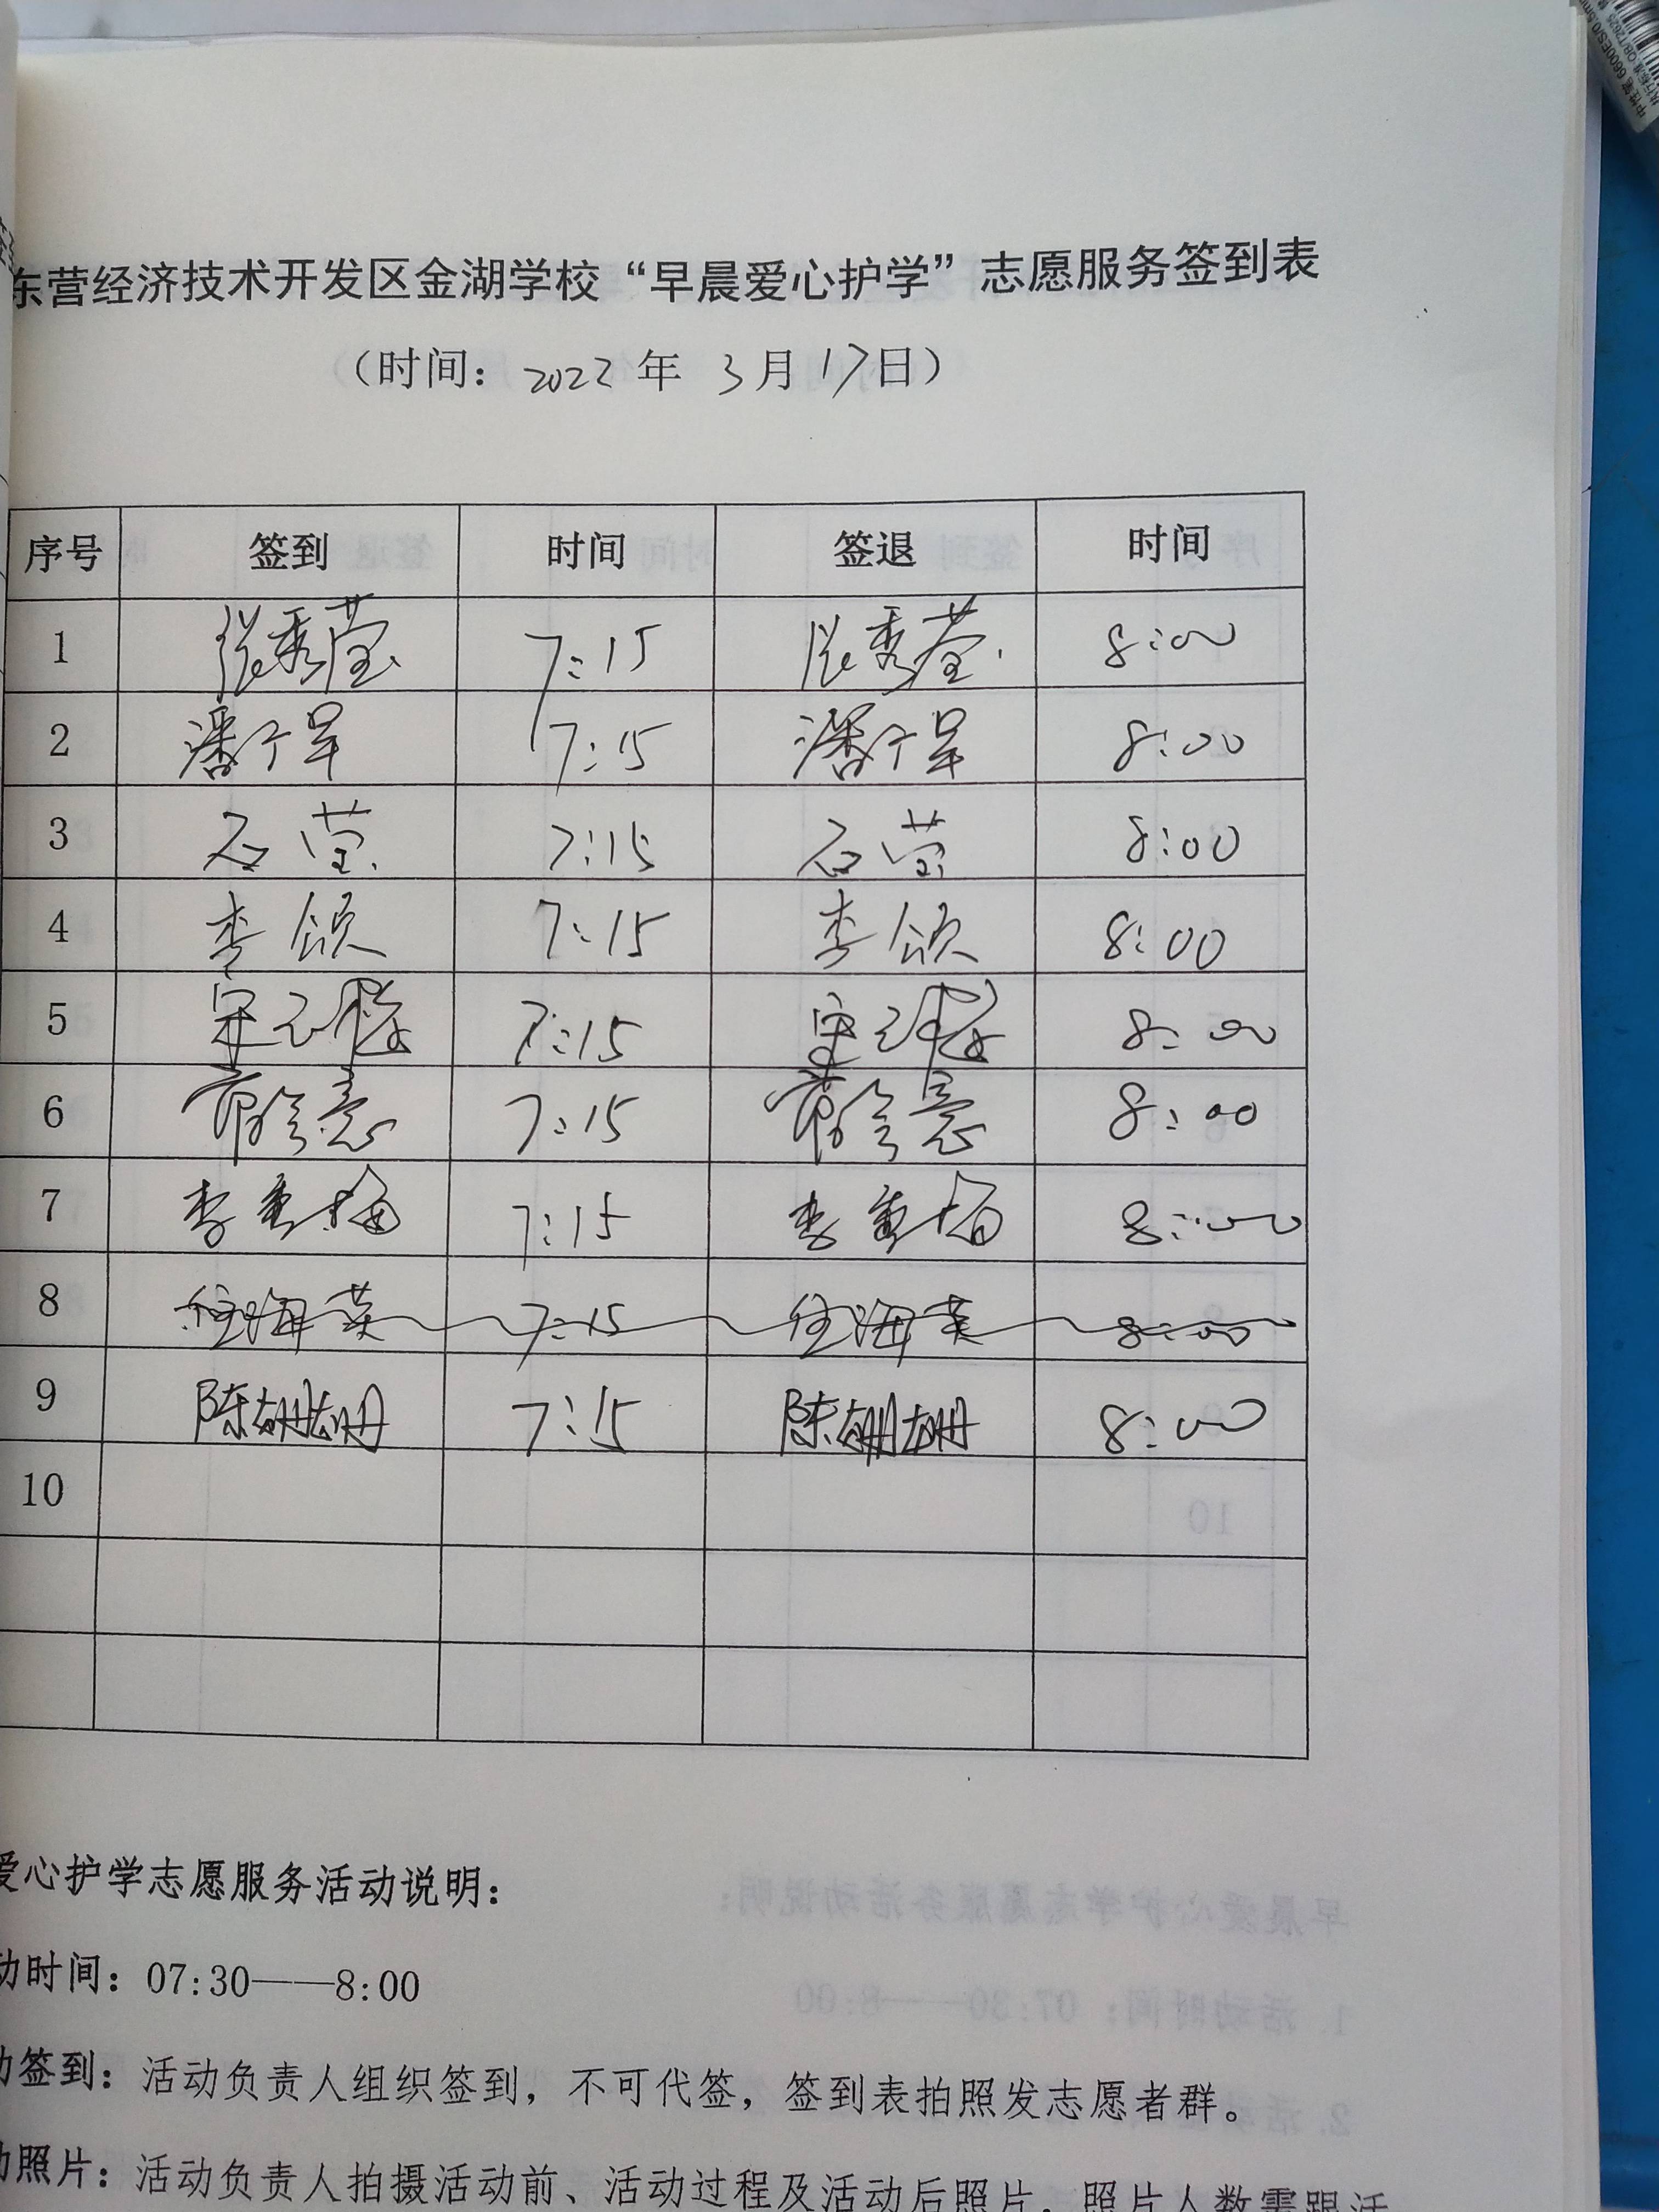 东营经济技术开发区金湖学校“早晨爱心护学”志愿服务签到表
（时间：2022年 3月17日）
序号 签到 时间 签退 时间
1 张秀莹 7:15 张秀莹 8:00
2 潘子军 7:15 潘子军 8:00
3 石莹 7:15 石莹 8:00
4 李颂 7:15 李颂 8:00
5 7:15 8:00
6 7:15 8:00
7 李秀梅 7:15 李秀梅 8:00
8 任海英 7:15 任海英 8:00
9 陈姗姗 7:15 陈姗姗 8:00
10
爱心护学志愿服务活动说明：
动时间：07:30——8:00
动签到：活动负责人组织签到，不可代签，签到表拍照发志愿者群。
动照片：活动负责人拍摄活动前、活动过程及活动后照片，照片人数需跟活